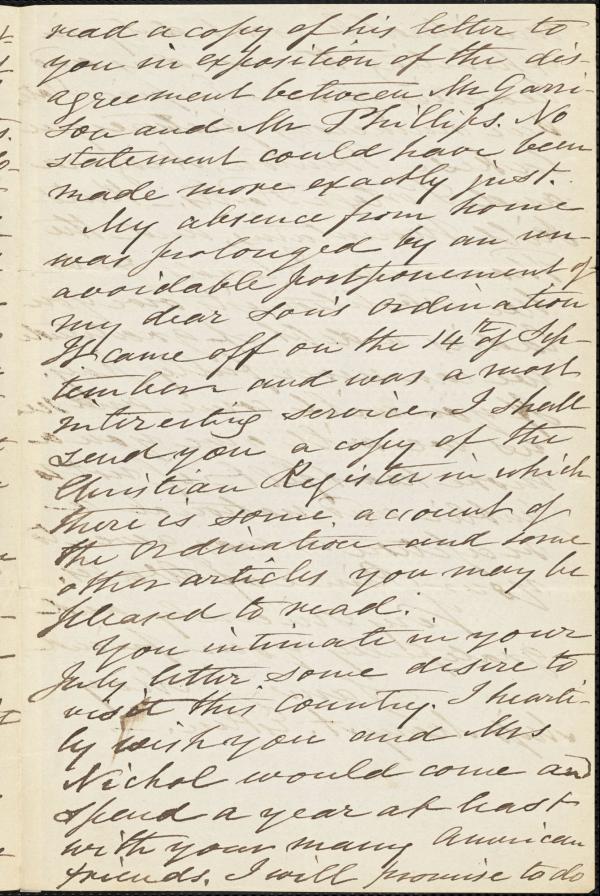 read a copy of his letter to
you in exposition of the dis-
agreement between Mr Garri-
son and Mr Phillips. No
statement could have been
made more exactly just.
My absence from home
was prolonged by an un-
avoidable postponement of
my dear son's ordination
It came off on the 14th of Sep-
tember and was a most
interesting service. I shall
send you a copy of the
Christian Register in which
there is some account of
the Ordination and some
other articles you may be
pleased to read.
You intimate in your
July letter some desire to
visit this country. I hearti-
ly wish you and Mrs
Nichol would come and
spend a year at least
with your many American
friends. I will promise to do